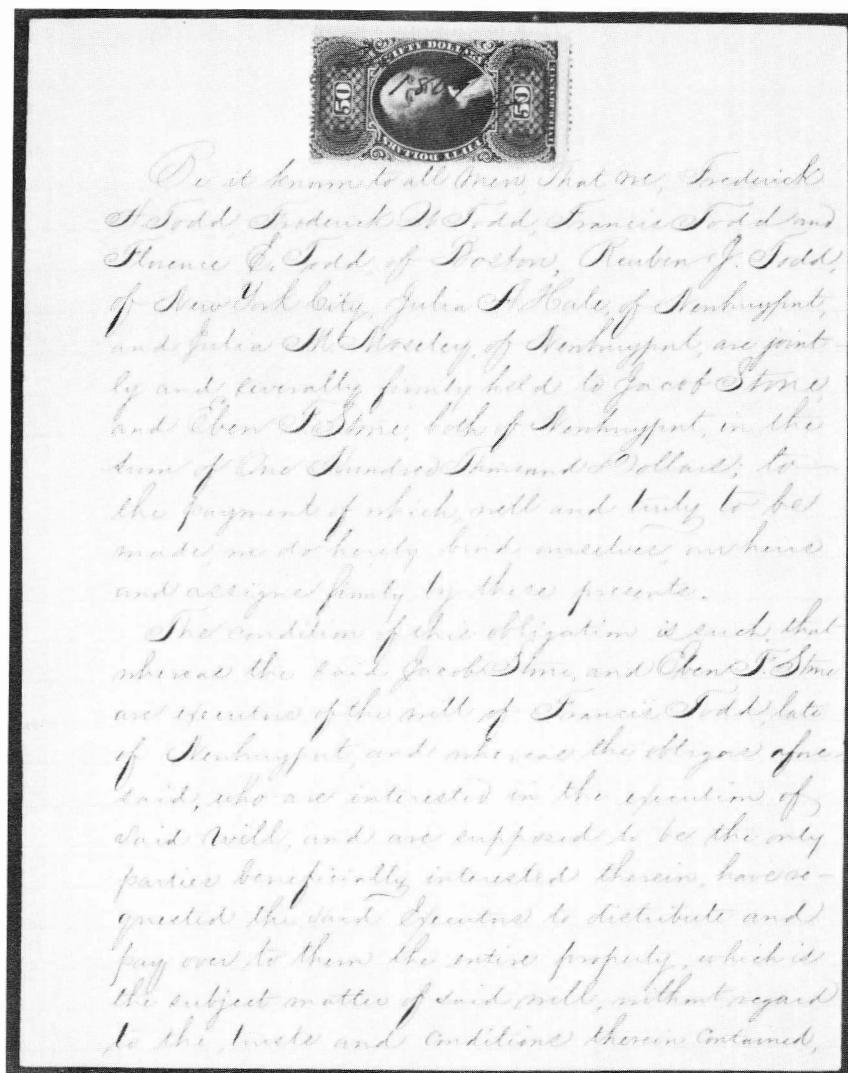 FIFTY DOLLARS
50
50
INTER. REVENUE
FIFTY DOLLARS
Be it known to all Men, that we, Frederick
A Todd, Frederick W Todd, Francis Todd and
Florence E. Todd, of Boston, Reuben J. Todd,
of New York City, Julia A Hale, of Newburyport,
and Julia M. Moseley, of Newburyport, are joint-
ly and severally firmly held to Jacob Stone,
and Eben F. Stone, both of Newburyport, in the
sum of One Hundred Thousand Dollars; to
the payment of which, well and truly to be
made, we do hereby bind ourselves, our heirs
and assigns firmly by these presents.
The condition of this obligation is such, that
whereas the said Jacob Stone, and Eben F. Stone
are executors of the will of Francis Todd, late
of Newburyport, and whereas the obligors afore-
said, who are interested in the execution of
said will, and are supposed to be the only
parties beneficially interested therein, have re-
quested the said Executors to distribute and
pay over to them the entire property, which is
the subject matter of said will, without regard
to the trusts and conditions therein contained,